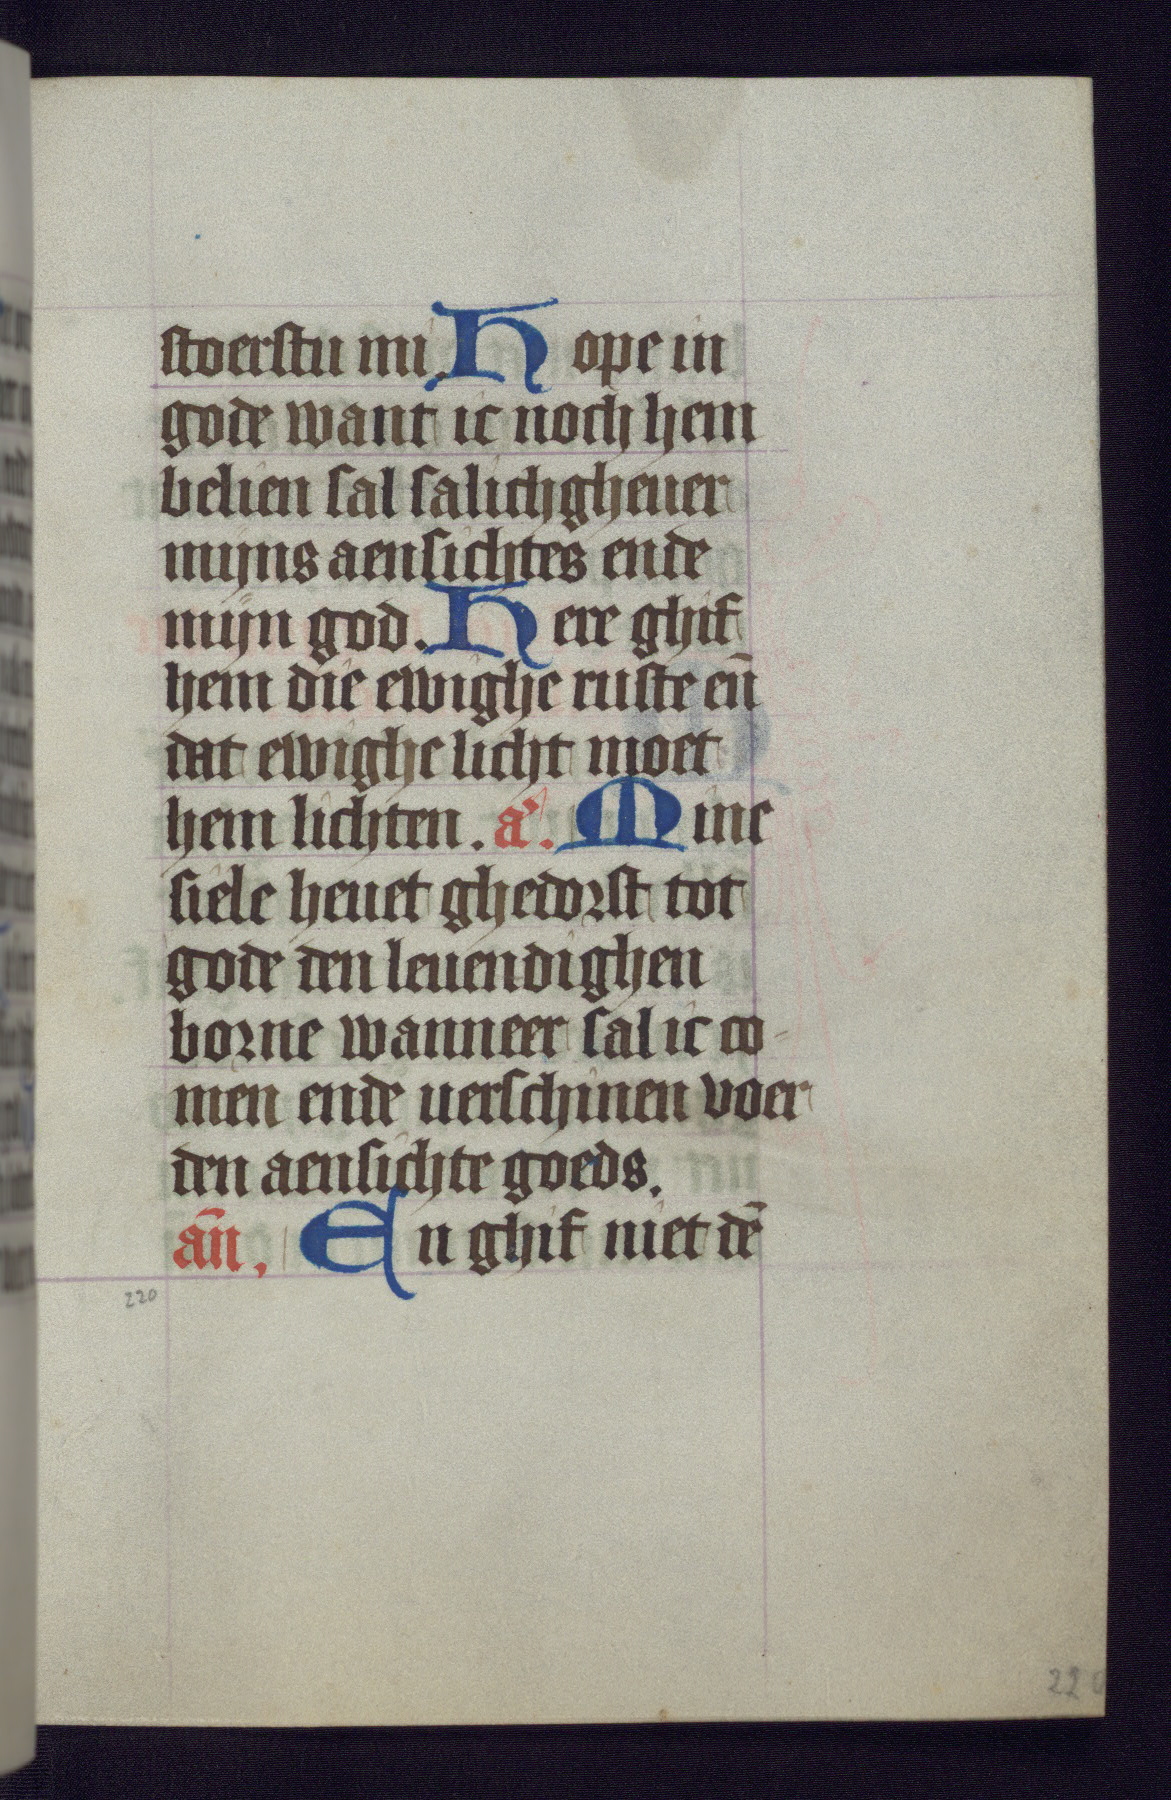 stoerstu mi. Hope in
gode want ic noch hem
belien sal salichgheuer
mijns aensichtes ende
mijn god. Here ghif
hem die ewighe ruste en̄
dat ewighe licht moet
hem lichten. a'. Mine
siele heuet ghedorst tot
gode den leuendighen
borne wanneer sal ic co-
men ende uerschinen voer
den aensichte goeds.
an̄. En ghif niet dē
220
220